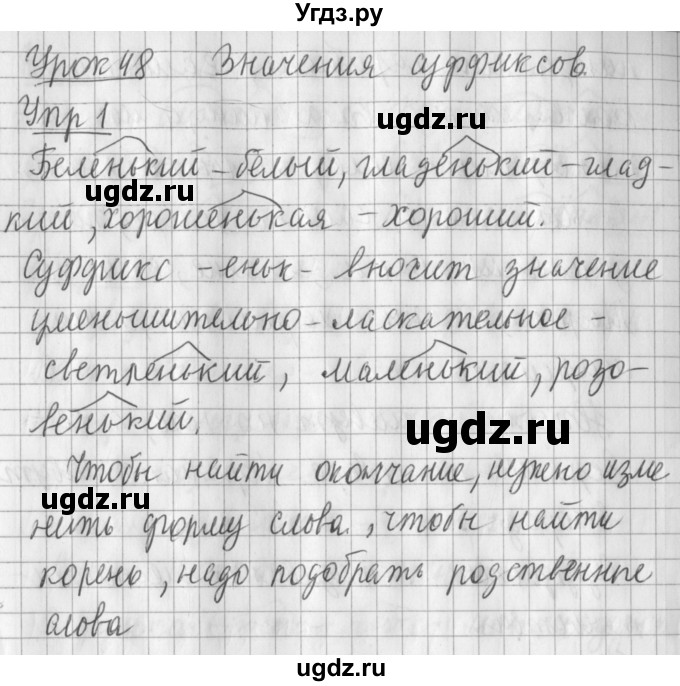 Угдз.ру
Урок 48 Значения суффиксов.
Упр 1
ugdz.ru
Беленький – белый, гладенький – глад-
ugdz.ru
кий, хорошенькая – хороший.
Суффикс -еньк- вносит значение
уменьшительно-ласкательное –
светленький, маленький, розо-
венький.
ugdz.ru
Чтобы найти окончание, нужно изме
ugdz.ru
нить форму слова, чтобы найти
корень, надо подобрать родственные
слова
ugdz.ru